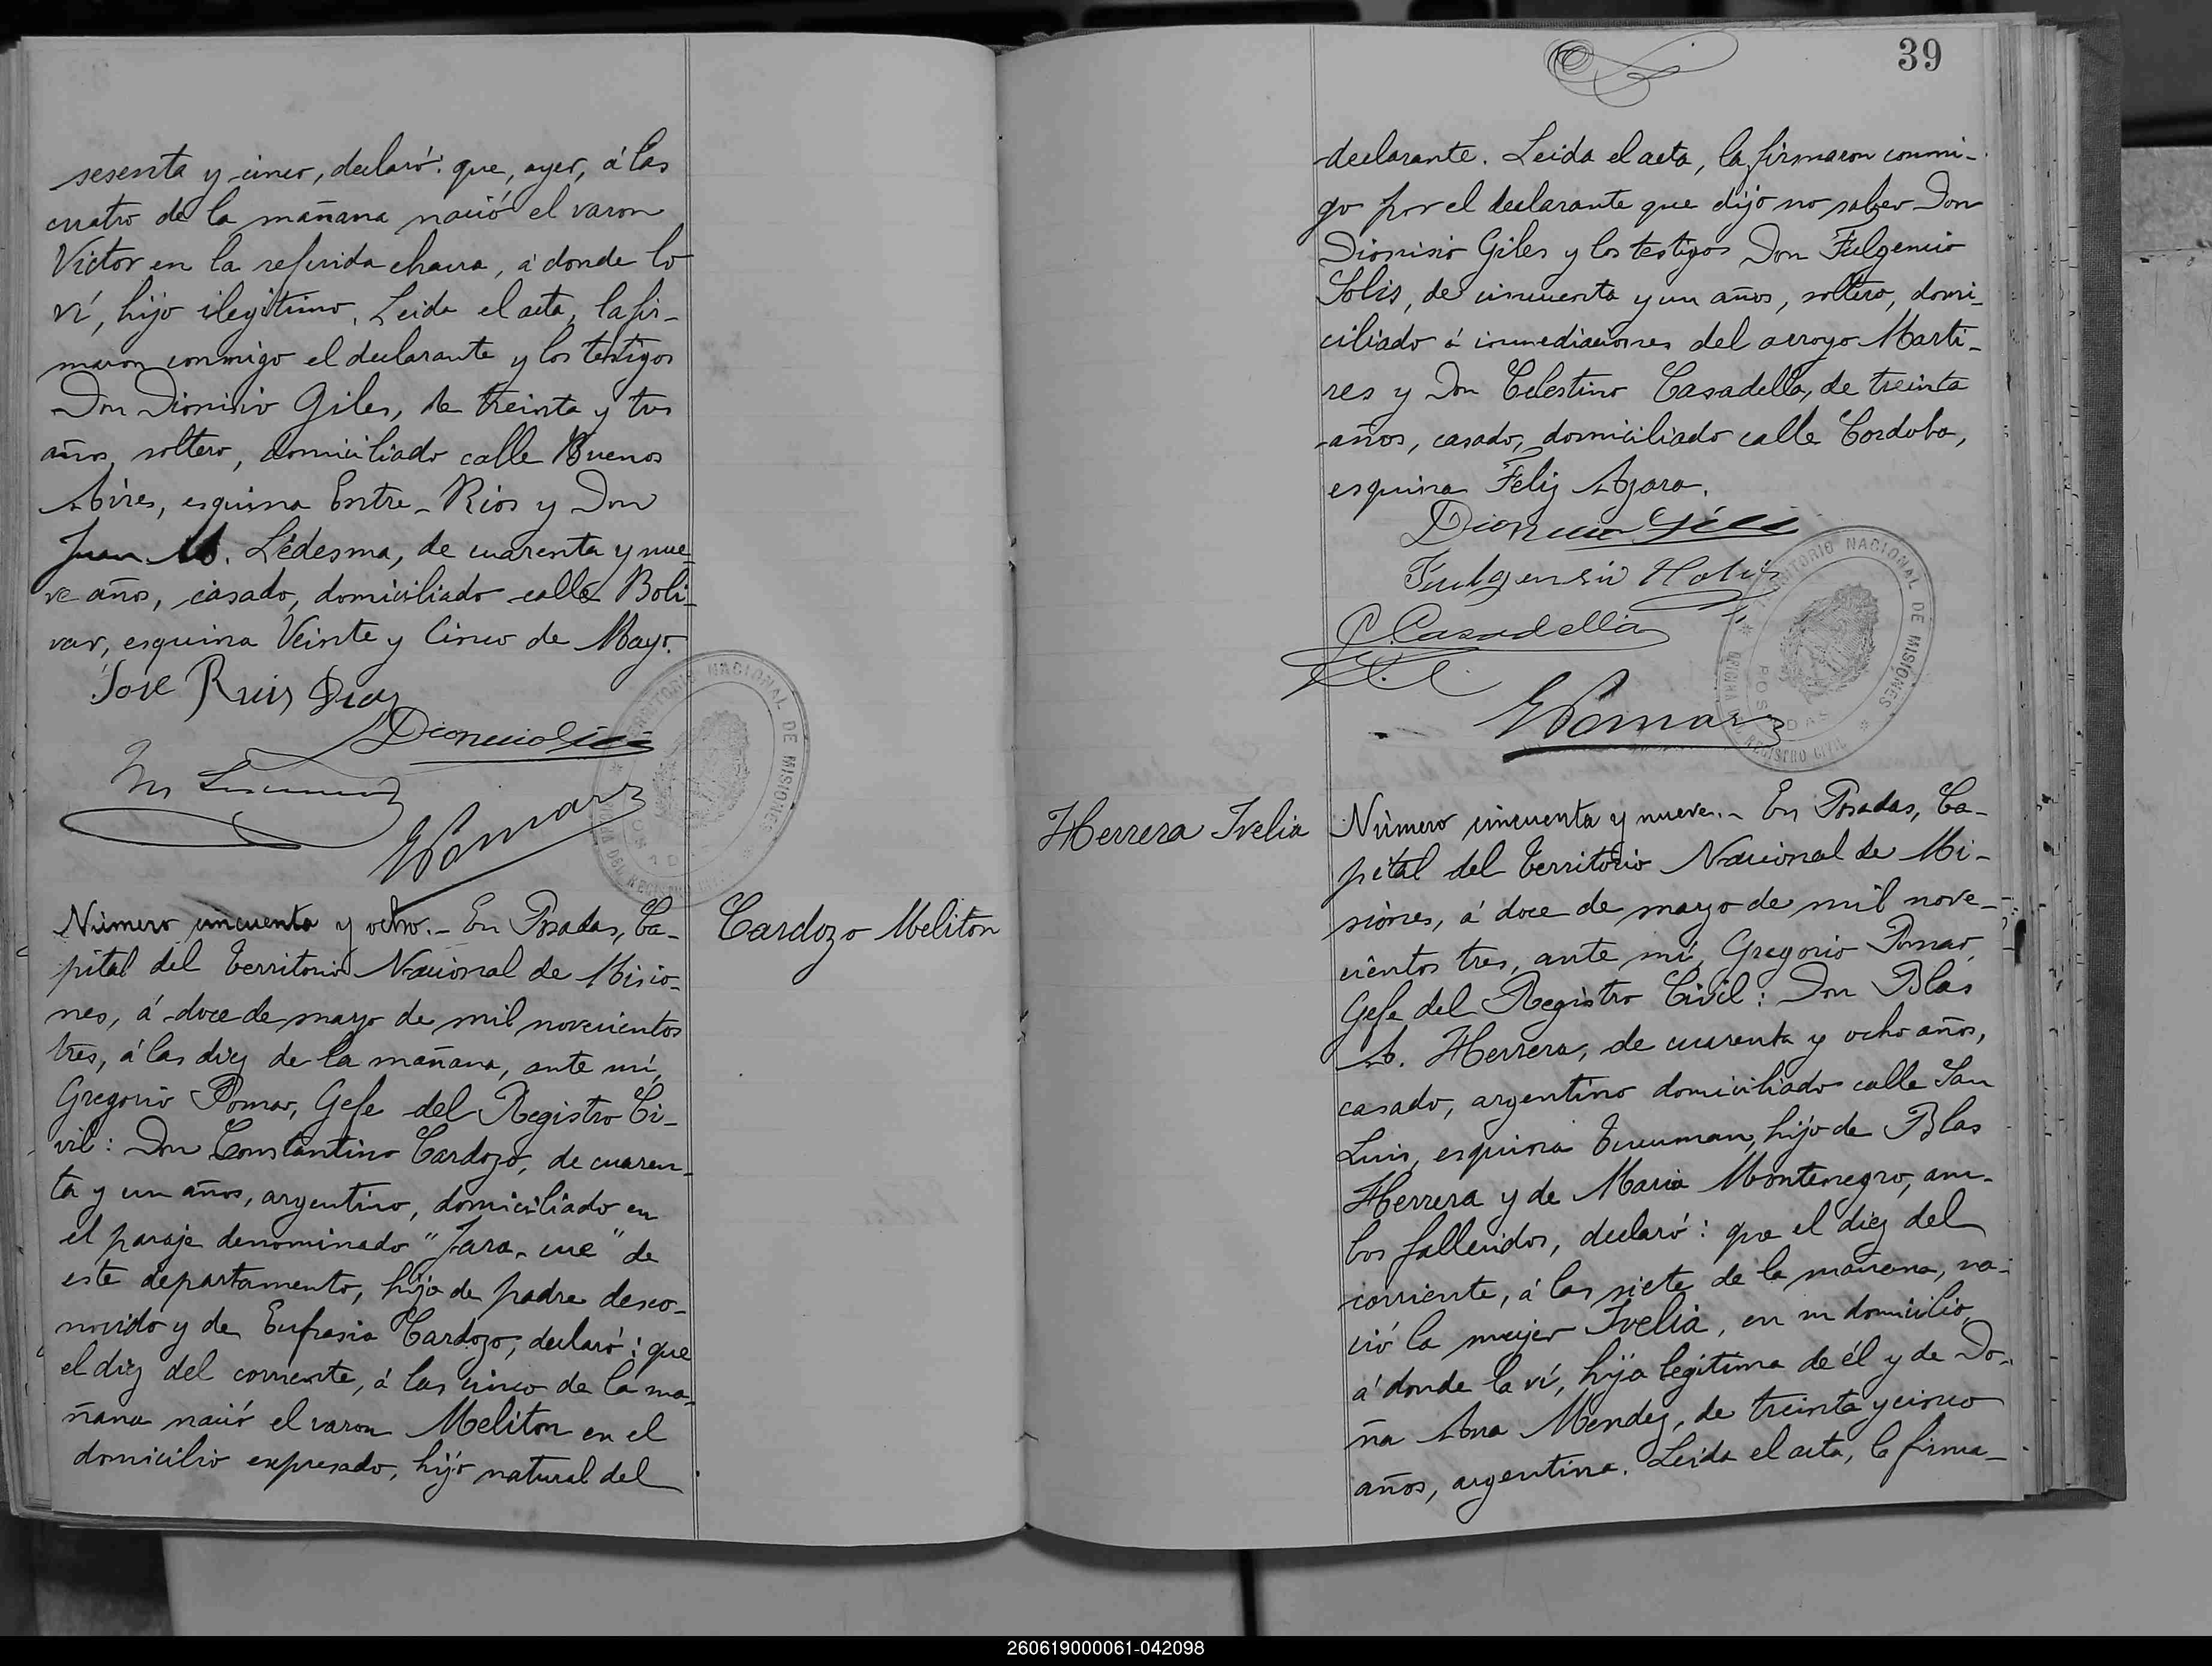 sesenta y cinco, declaró: que, ayer, á las
cuatro de la mañana nació el varon
Victor en la referida chacra, á donde lo
ví, hijo ilegítimo. Leida el acta, la fir-
maron conmigo el declarante y los testigos
Don Dionisio Giles, de treinta y tres
años, soltero, domiciliado calle Buenos
Aires, esquina Entre-Rios y Don
Juan M. Ledesma, de cuarenta y nue-
ve años, casado, domiciliado calle Boli-
var, esquina Veinte y Cinco de Mayo.
José Ruis Dias
Dionicio Giles
GPomar
TERRITORIO NACIONAL DE MISIONES
POSADAS
OFICINA DEL REGISTRO CIVIL
Número cincuenta y ocho.- En Posadas, Ca-
pital del Territorio Nacional de Misio-
nes, á doce de mayo de mil novecientos
tres, á las diez de la mañana, ante mí,
Gregorio Pomar, Gefe del Registro Ci-
vil: Don Constantino Cardozo, de cuaren-
ta y un años, argentino, domiciliado en
el paraje denominado "Jara-cue" de
este departamento, hijo de padre desco-
nocido y de Eufrasia Cardozo, declaró: que
el diez del corriente, á las cinco de la ma-
ñana nació el varon Meliton en el
domicilio expresado, hijo natural del
Cardozo Meliton
39
declarante. Leida el acta, la firmaron conmi-
go por el declarante que dijo no saber Don
Dionisio Giles y los testigos Don Fulgencio
Solis, de cincuenta y un años, soltero, domi-
ciliado á inmediaciones del arroyo Marti-
res y Don Celestino Casadella, de treinta
años, casado, domiciliado calle Cordoba,
esquina Feliz Azara.
Dionicio Giles
Fulgensio Solis
C. Casadella
GPomar
TERRITORIO NACIONAL DE MISIONES
POSADAS
OFICINA DEL REGISTRO CIVIL
Herrera Ivelia
Número cincuenta y nueve.- En Posadas, Ca-
pital del Territorio Nacional de Mi-
siones, á doce de mayo de mil nove-
cientos tres, ante mí, Gregorio Pomar,
Gefe del Registro Civil: Don Blas
A. Herrera, de cuarenta y ocho años,
casado, argentino domiciliado calle San
Luis, esquina Tucuman, hijo de Blas
Herrera y de Maria Montenegro, am-
bos fallecidos, declaró: que el diez del
corriente, á las siete de la mañana, na-
ció la mujer Ivelia, en su domicilio,
á donde la ví, hija legítima de él y de Do-
ña Ana Mendez, de treinta y cinco
años, argentina. Leida el acta, la firma-
260619000061-042098